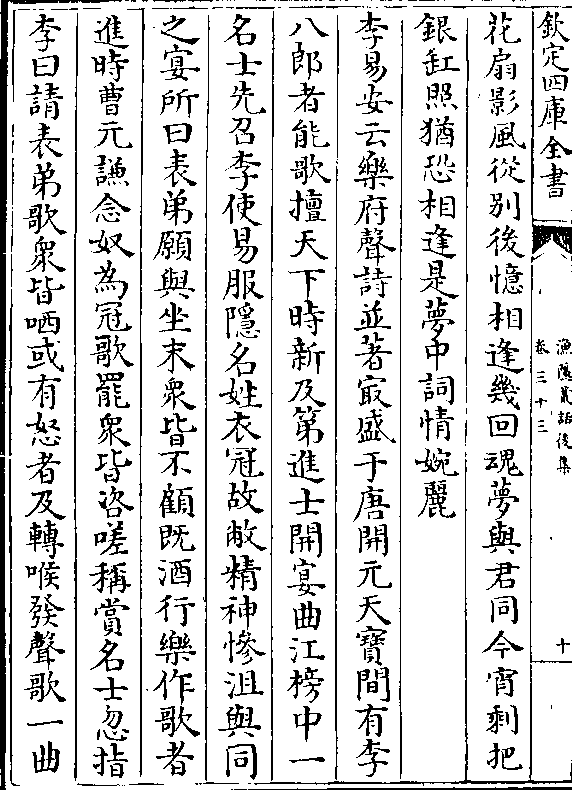 欽定四庫全書
漁隱叢話後集
卷三十三
十
花扇影風從别後憶相逢幾回魂夢與君同今宵剩把
銀缸照猶恐相逢是夢中詞情婉麗
李易安云樂府聲詩並著㝡盛于唐開元天寶間有李
八郎者能歌擅天下時新及第進士開宴曲江榜中一
名士先召李使易服隱名姓衣冠故敝精神慘沮與同
之宴所曰表弟願與坐末衆皆不顧既酒行樂作歌者
進時曹元謙念奴為冠歌罷衆皆咨嗟稱賞名士忽指
李曰請表弟歌衆皆哂或有怒者及轉喉發聲歌一曲